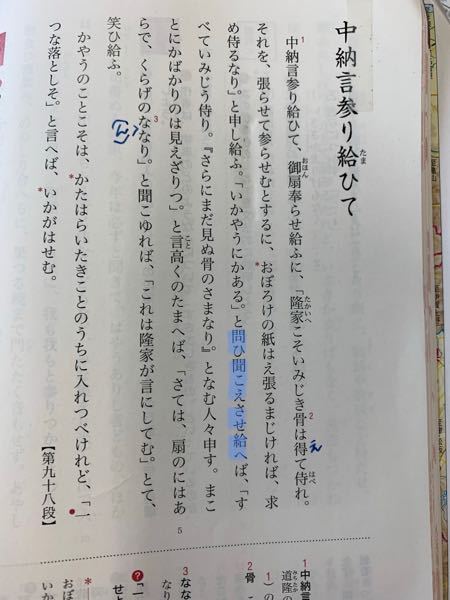 中納言参り給ひて
たま
中納言参り給ひて、御扇奉らせ給ふに、「隆家こそいみじき骨は得て侍れ。
1
おほん
たかいへ
2
え
はべ
それを、張らせて参らせむとするに、おぼろけの紙はえ張るまじければ、求
め侍るなり。」と申し給ふ。「いかやうにかある。」と問ひ聞こえさせ給へば、「す
べていみじう侍り。『さらにまだ見ぬ骨のさまなり。』となむ人々申す。まこ
とにかばかりのは見えざりつ。」と言高くのたまへば、「さては、扇のにはあ
こと
5
らで、くらげのななり。」と聞こゆれば、「これは隆家が言にしてむ。」とて、
3
(ん)
笑ひ給ふ。
かやうのことこそは、かたはらいたきことのうちに入れつべけれど、「一
つな落としそ。」と言へば、いかがはせむ。
【第九十八段】
1 中納言
道隆の
みちたか
2 骨
3 なな
なり